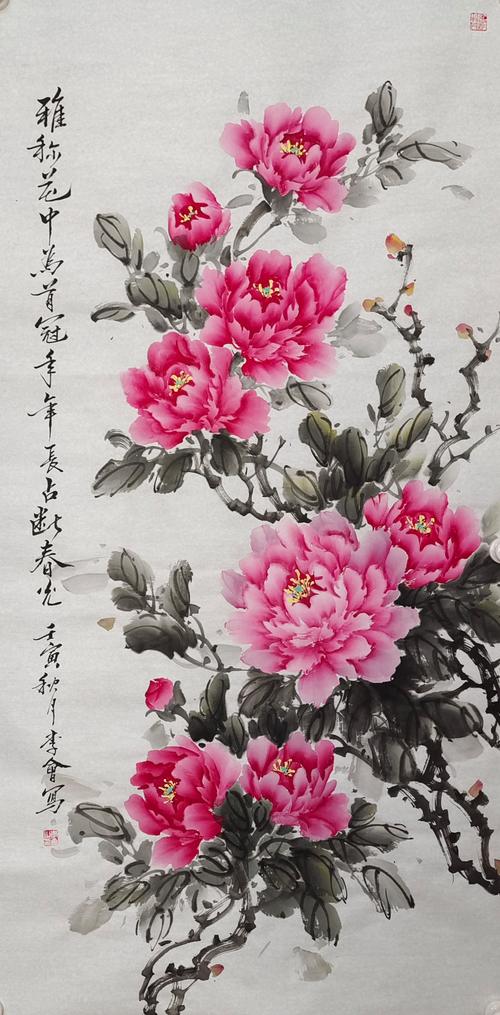 雅称花中為首冠秊年長占断春光壬寅秋月李會寫